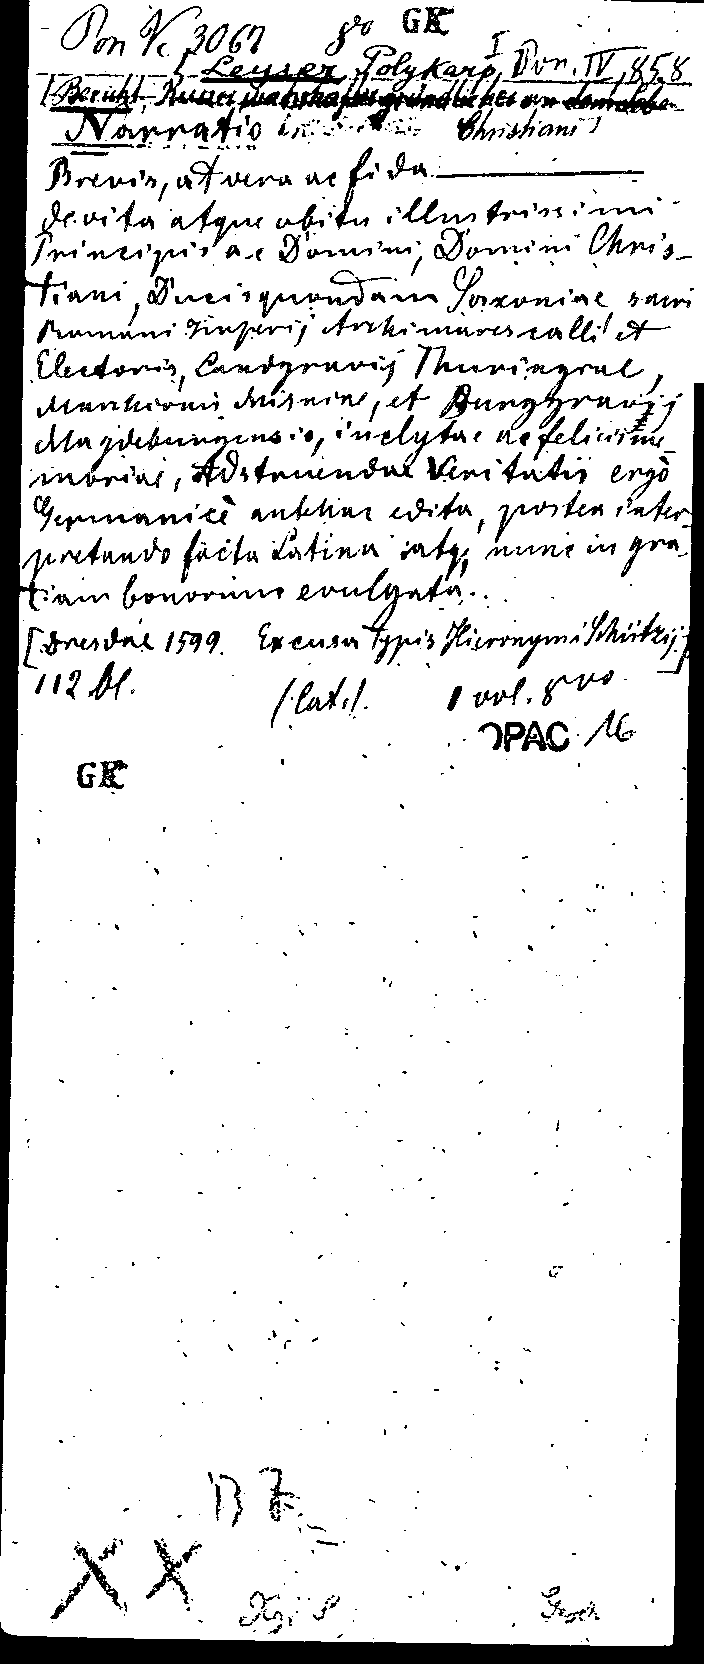 Pon Vc 3067 8vo GK
Leyser, Polykarp I, Don. IV, 858
[Bericht, Kurzer wahrhafter gründlicher von dem
Narratio Christiani
Brevis, at vera ac fida
de vita atque obitu illustrissimi
Principis ac Domini, Domini Chris-
tiani, Ducis quondam Saxoniae sacri
Romani Imperij Archimarescalli et
Electoris, Landgravij Thuringiae,
Marchionis Misniae, et Burggravij
Magdeburgensis, inclytae ac felicis me-
moriae, Adstruendae Veritatis ergò
Germanicè antehac edita, postea inter-
pretando facta Latina iatq, nunc in gra-
tiam bonorum evulgata..
[Dresdae 1599. Excusa typis Hieronymi Schützij.]
112 Bl. (Lat.). 1 vol. 8vo
OPAC 16
GK
B Z
X X